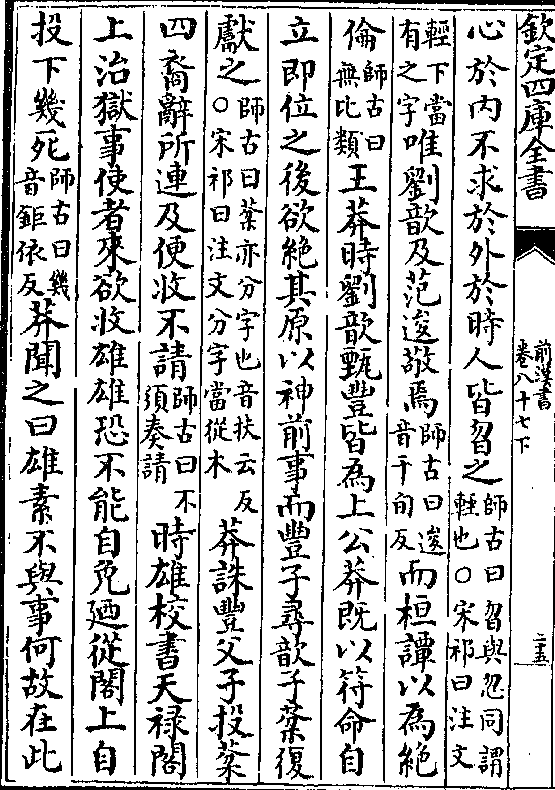 欽定四庫全書
前漢書
卷八十七下
二十五
心於内不求於外於時人皆曶之師古曰曶與忽同謂
輕也○宋祁曰注文
輕下當
有之字唯劉歆及范逡敬焉師古曰逡
音千旬反而桓譚以為絶
倫師古曰
無比類王莽時劉歆甄豐皆為上公莽既以符命自
立即位之後欲絶其原以神前事而豐子尋歆子棻復
獻之師古曰棻亦分字也音扶云反
○宋祁曰注文分字當從木莽誅豐父子投棻
四裔辭所連及便收不請師古曰不
須奏請時雄校書天禄閣
上治獄事使者來欲收雄雄恐不能自免廼從閣上自
投下幾死師古曰幾
音鉅依反莽聞之曰雄素不與事何故在此